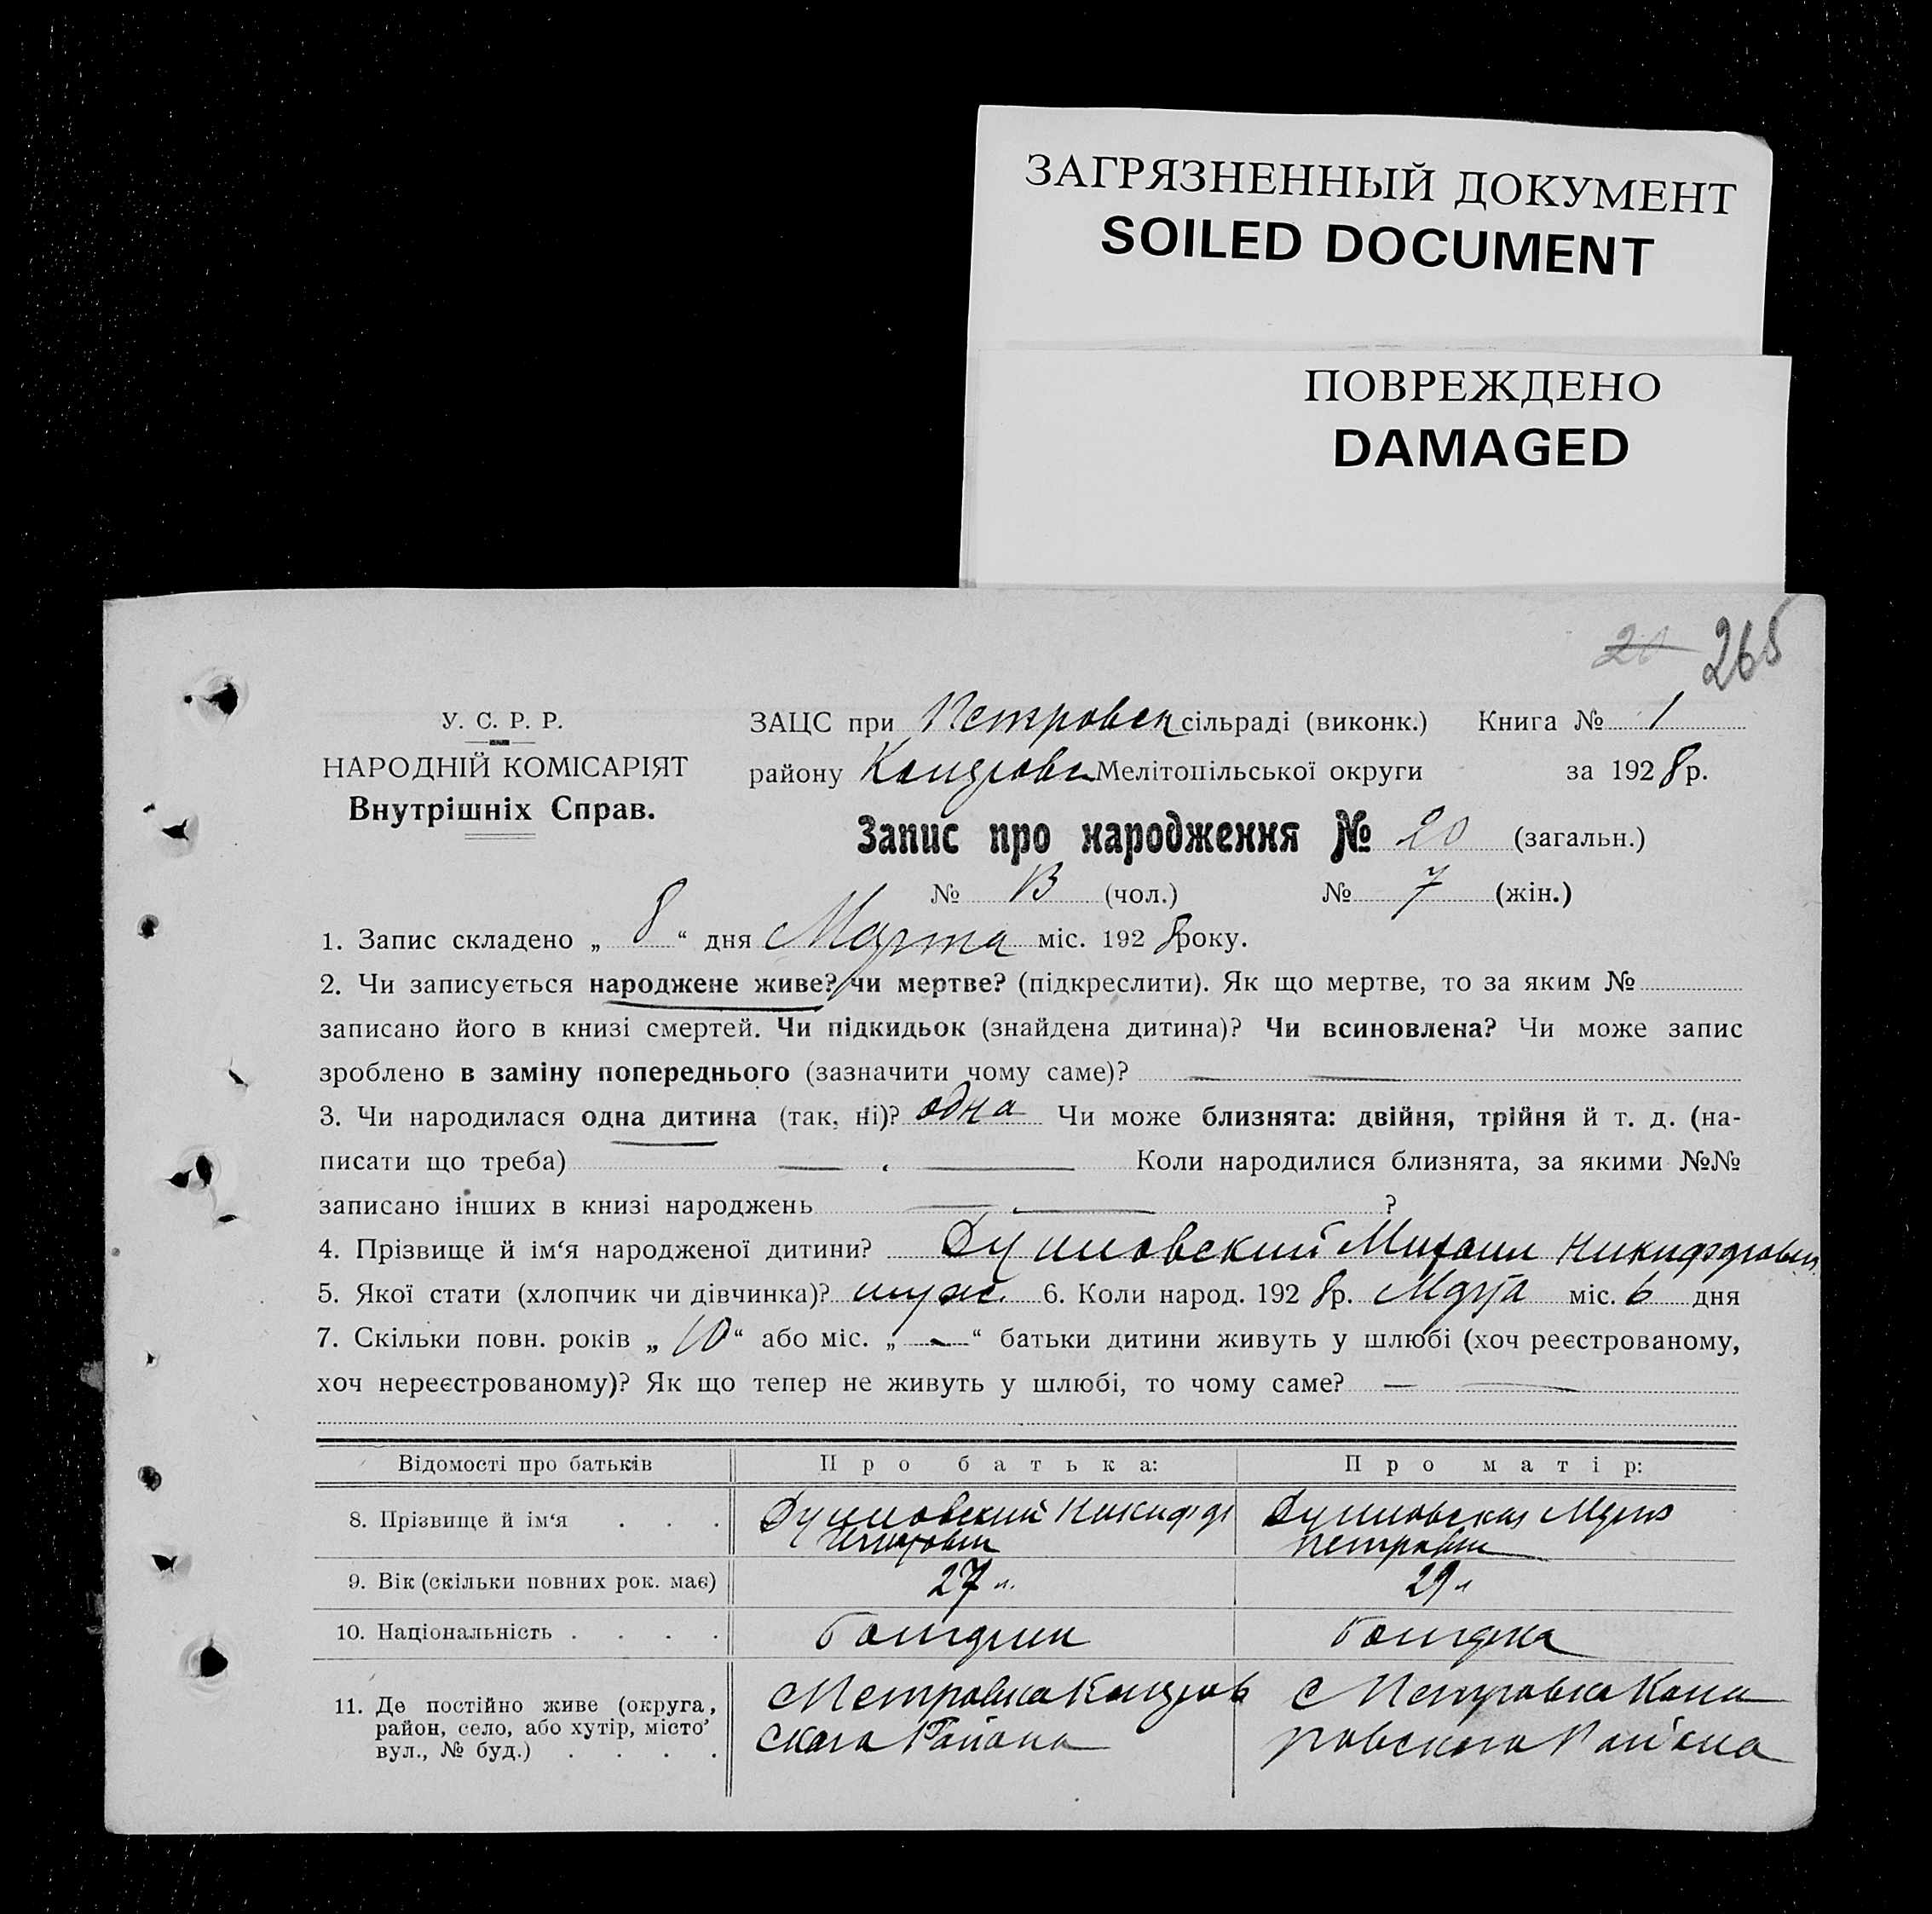 ЗАГРЯЗНЕННЫЙ ДОКУМЕНТ
SOILED DOCUMENT
ПОВРЕЖДЕНО
DAMAGED
20 265
У. С. Р. Р.
НАРОДНІЙ КОМІСАРІЯТ
Внутрішніх Справ.
ЗАЦС при Петровск сільраді (виконк.) Книга № 1
району Мелітопільської округи за 1928 р.
Запис про народження № 20 (загальн.)
№ 13 (чол.) № 7 (жін.)
1. Запис складено „ 8 “ дня Марта міс. 1928 року.
2. Чи записується народжене живе? чи мертве? (підкреслити). Як що мертве, то за яким №
записано його в книзі смертей. Чи підкидьок (знайдена дитина)? Чи всиновлена? Чи може запис
зроблено в заміну попереднього (зазначити чому саме)? — —
3. Чи народилася одна дитина (так, ні)? одна Чи може близнята: двійня, трійня й т. д. (на-
писати що треба) — — Коли народилися близнята, за якими №№
записано інших в книзі народжень — — ?
4. Прізвище й ім‘я народженої дитини? Михаил Никифорович
5. Якої стати (хлопчик чи дівчинка)? муж. 6. Коли народ. 1928 р. Марта міс. 6 дня
7. Скільки повн. років „ 10 “ або міс. „ — “ батьки дитини живуть у шлюбі (хоч реєстрованому,
хоч нереєстрованому)? Як що тепер не живуть у шлюбі, то чому саме? — —
Відомості про батьків Про батька: Про матір:
8. Прізвище й ім‘я . . . Никифор
Петровна
9. Вік (скільки повних рок. має) 27 л. 29 л
10. Національність . . . .
11. Де постійно живе (округа, с Петровка с Петровка
район, село, або хутір, місто, ского Района ровского Района
вул., № буд.) . . . .